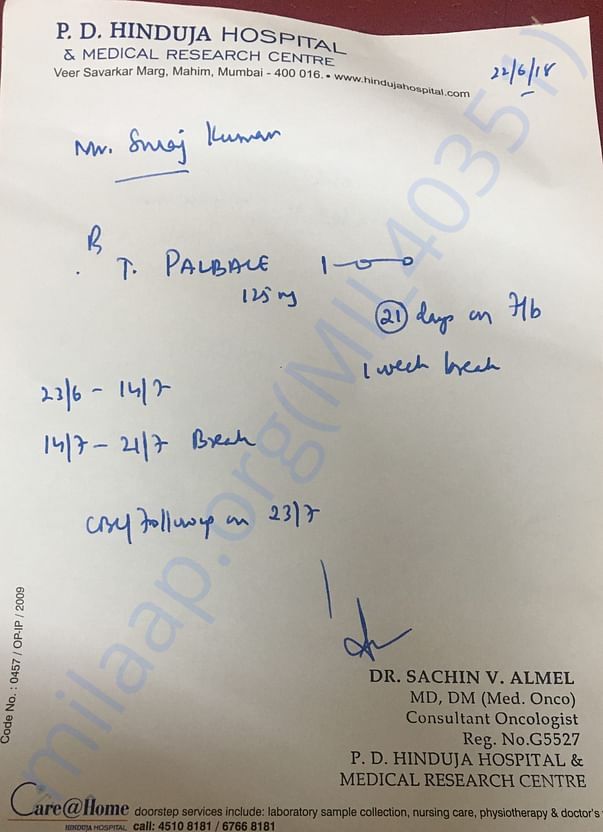 P. D. HINDUJA HOSPITAL
& MEDICAL RESEARCH CENTRE
Veer Savarkar Marg, Mahim, Mumbai - 400 016. • www.hindujahospital.com
22/6/18
Mr. Suraj Kumar
T. PALBACE 1-0-0
125 mg
21 days on
1 week break
23/6 - 14/7
14/7 - 21/7 Break
CBC/Followup on 23/7
DR. SACHIN V. ALMEL
MD, DM (Med. Onco)
Consultant Oncologist
Reg. No.G5527
P. D. HINDUJA HOSPITAL &
MEDICAL RESEARCH CENTRE
Code No. : 0457 / OP-IP / 2009
Care@Home doorstep services include: laboratory sample collection, nursing care, physiotherapy & doctor's
HINDUJA HOSPITAL call: 4510 8181 / 6766 8181
milaap.org(MIL40351)